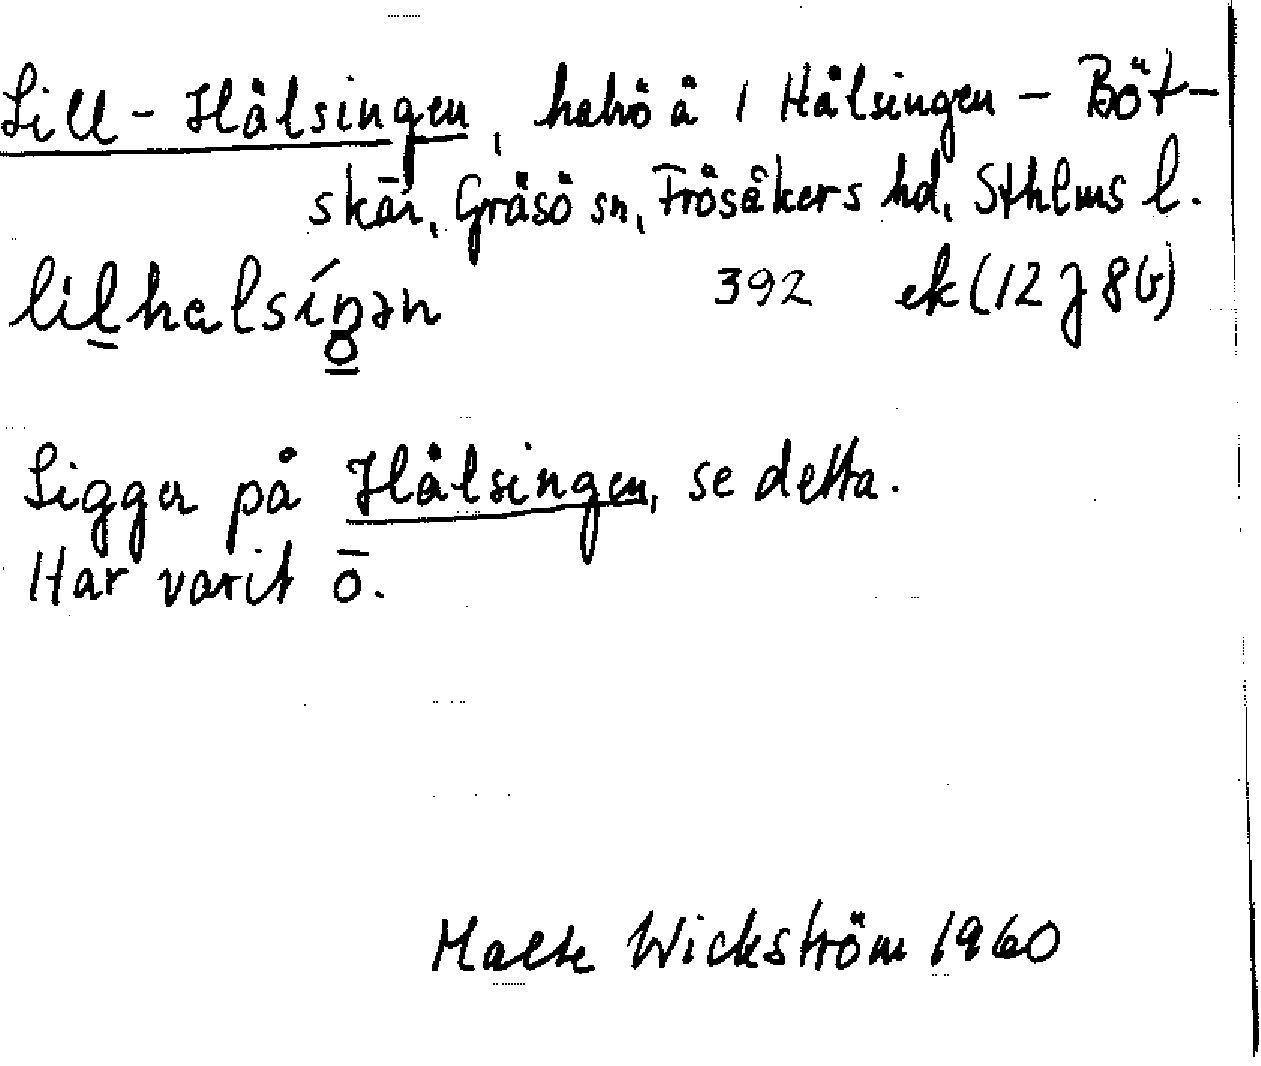 Lill-Hålsingen, halvö å 1 Hålsingen - Böt-
skär, Gräsö sn, Frösåkers hd, Sthlms l.
392 ek (12 J 8 b)
Ligger på Hålsingen, se detta.
Har varit ö.
Malte Wickström 1960